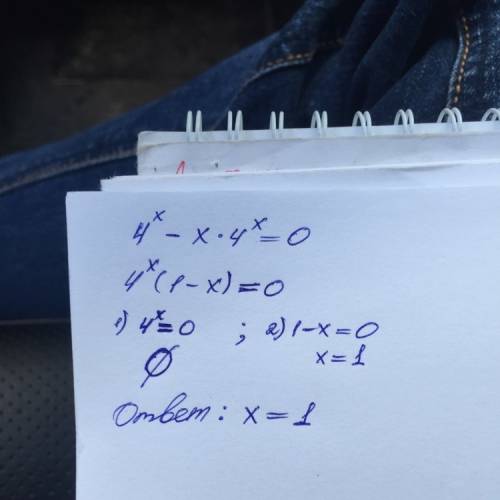 4ˣ - x · 4ˣ = 0
4ˣ(1 - x) = 0
1) 4ˣ = 0 ; 2) 1 - x = 0
∅ x = 1
Ответ: x = 1